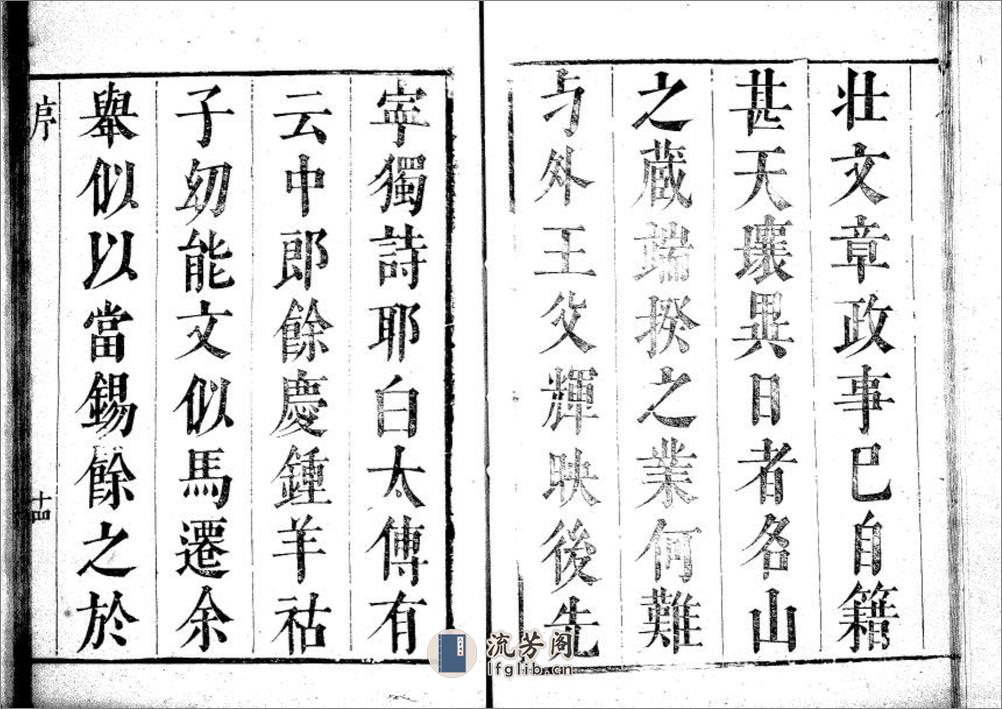 壮文章政事已自籍
甚天壤異日者名山
之蔵端揆之業何難
与外王父輝映後先
寕獨詩耶白太傅有
云中郎餘慶鍾羊祜
子㓜能文似馬遷余
舉似以當錫餘之於
序
十四
流芳阁
lfglib.cn